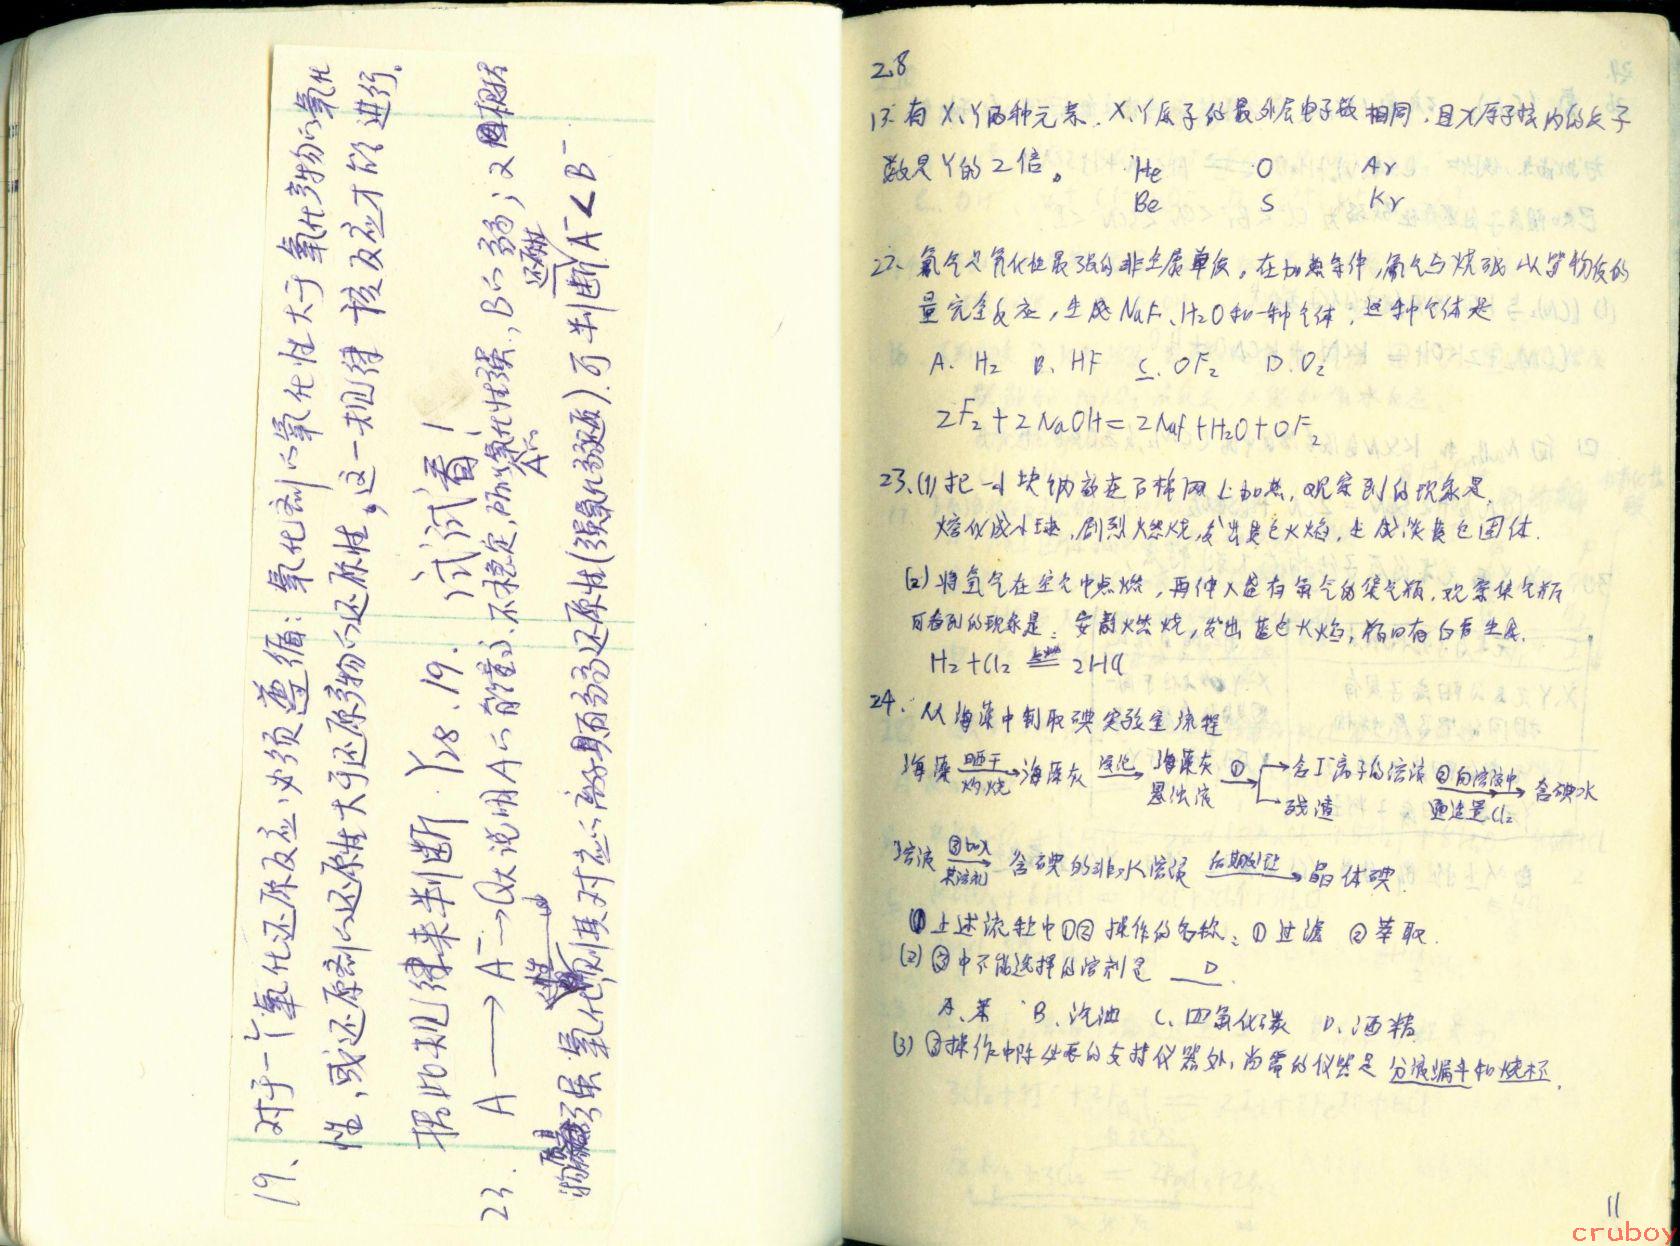 19、对于一个氧化还原反应,必须遵循:氧化剂的氧化性大于氧化产物的氧化
性,或还原剂的还原性大于还原产物的还原性。这一规律 该反应才能进行。
据此规律来判断 Y28.19. 试试看!
23. A ⟶ A⁻→Q大说明A的能量小、不稳定,所以氧化性强,B的弱;又根据
A的 还原性
物质 强氧化性,则其对应的离子具有弱还原性(强氧化弱还原).可判断A⁻<B⁻
28
13. 有X、Y两种元素.X、Y原子的最外层电子数相同,且X原子核内的质子
数是Y的2倍。 He O Ar
Be S Kr
22. 氟气是氧化性最强的非金属单质,在加热条件,氟气与烧碱以等物质的
量完全反应,生成NaF、H₂O和一种气体,这种气体是
A. H₂ B. HF C. OF₂ D. O₂
2F₂+2NaOH=2NaF+H₂O+OF₂
23.(1) 把一小块钠放在石棉网上加热,观察到的现象是.
熔化成小球,剧烈燃烧,发出黄色火焰,生成淡黄色固体.
(2) 将氢气在空气中点燃,再伸入盛有氯气的集气瓶,观察集气瓶
可看到的现象是:安静燃烧,发出蓝色火焰,瓶口有白雾生成.
H₂+Cl₂ 点燃 2HCl
24. 从海藻中制取碘实验室流程
海藻 晒干 灼烧 → 海藻灰 浸泡 → 海藻灰悬浊液 ① → 含I⁻离子的溶液 ②向溶液中通适量Cl₂ → 含碘水
→ 残渣
溶液 ③加入某溶剂 → 含碘的非水溶液 后期处理 → 晶体碘.
(1) 上述流程中①③操作的名称:①过滤 ③萃取.
(2) ③中不能选择的溶剂是 D .
A、苯 B、汽油 C、四氯化碳 D、酒精
(3) ③操作中除必要的支持仪器外,尚需的仪器是 分液漏斗和烧杯.
11
cruboy